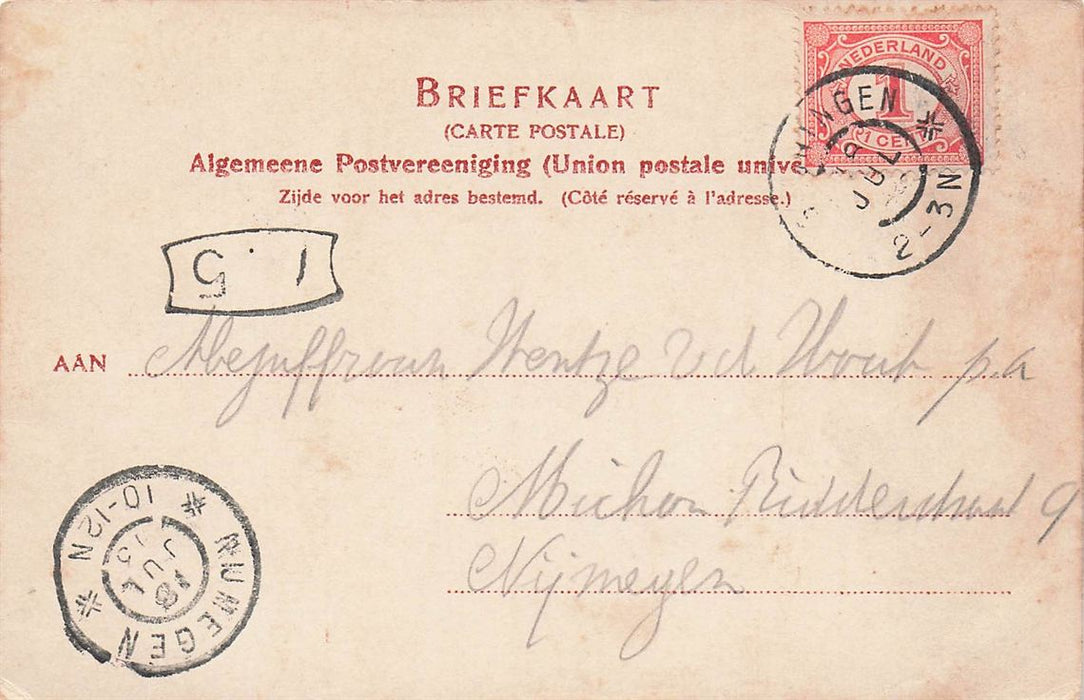 NEDERLAND
1
1 CENT
BRIEFKAART
(CARTE POSTALE)
Algemeene Postvereeniging (Union postale unive
Zijde voor het adres bestemd. (Côté réservé à l'adresse.)
NINGEN
JUL
2-3N
1.5
AAN Mejuffrouw Wentze v d Woub p.a
Michon Ridderstraat 9
Nijmegen
NIJMEGEN
10-12N
JUL